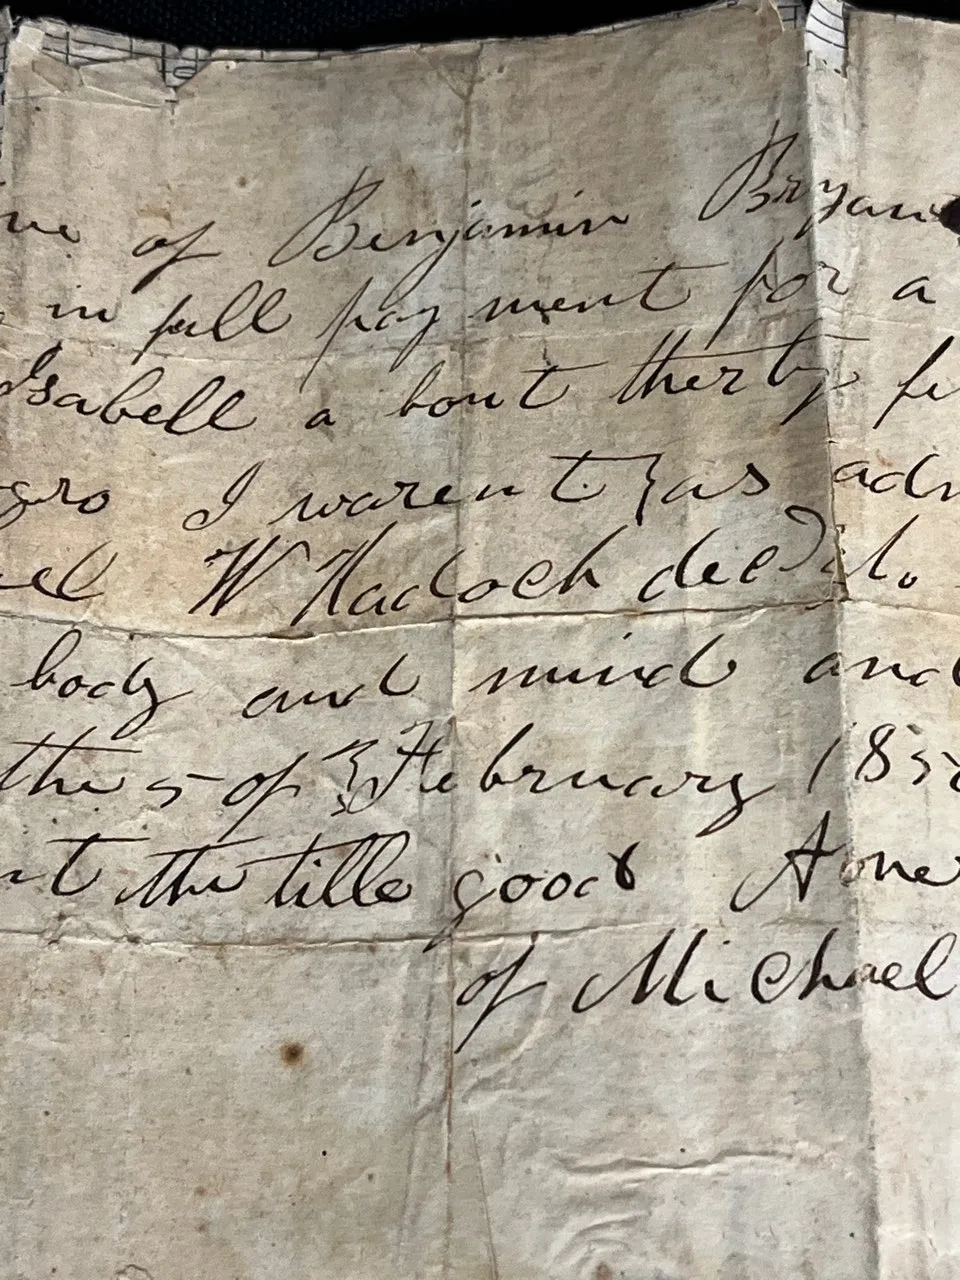 of Benjamin Bryan
in full pay ment for a
Isabell a bout therty fi
gro I warent as adm
el W Hadock decd
body and mind and
the 5 of February 185
nt the title good A one
of Michael